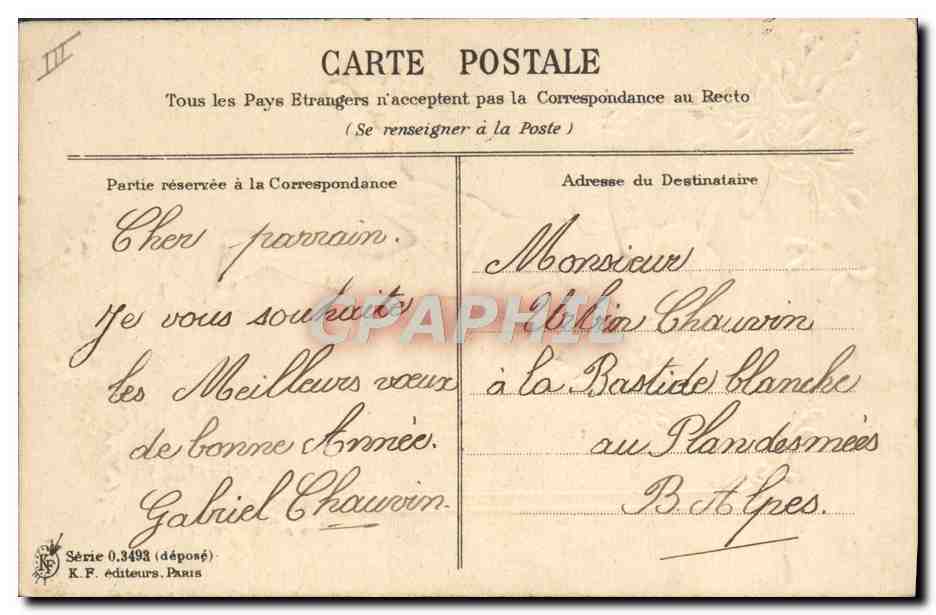 III
CARTE POSTALE
Tous les Pays Etrangers n'acceptent pas la Correspondance au Recto
(Se renseigner à la Poste)
Partie réservée à la Correspondance
Cher parrain.
Je vous souhaite
les Meilleurs vœux
de bonne Année.
Gabriel Chauvin
Adresse du Destinataire
Monsieur
Urbin Chauvin
à la Bastide blanche
au Plandesmées
B. Alpes.
CPAPHIL
KF
Série 0.3493 (déposé)
K. F. éditeurs. PARIS